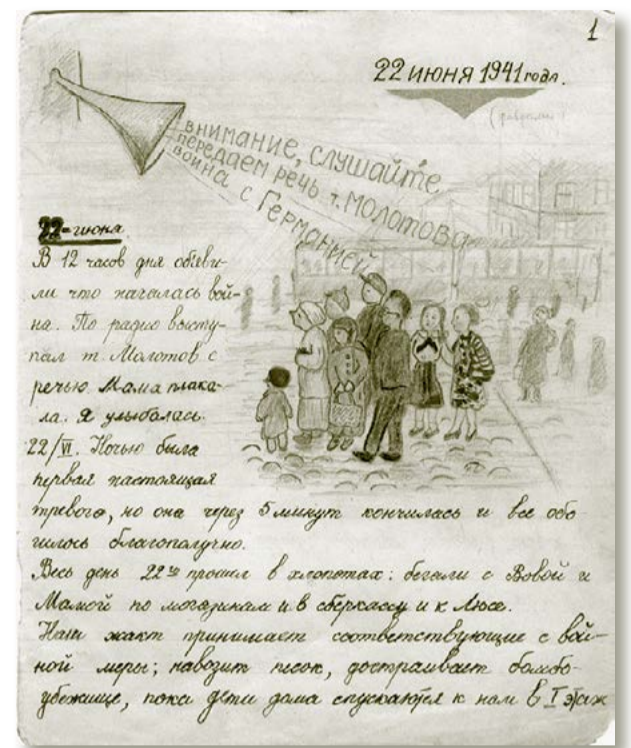 1
22 июня 1941 года.
внимание, слушайте
передаем речь т. Молотова
война с Германией
22-июня.
В 12 часов дня обьеви-
ли что началась вой-
на. По радио высту-
пал т. Молотов с
речью. Мама плака-
ла. Я улыбалась.
22/VI. Ночью была
первая настоящая
тревога, но она через 5 минут кончилась и все обо
шлось благополучно.
Весь день 22го прошел в хлопотах: бегали с Вовой и
Мамой по магазинам и в сберкассу и к Люсе.
Наш жакт принимает соответствующие с вой-
ной меры; навозит песок, достраивает бомбо-
убежище, пока дети дома спускаются к нам в I этаж